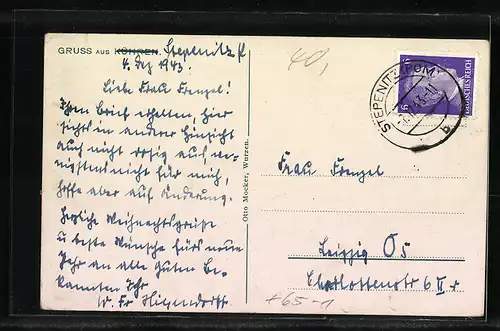 GRUSS AUS KÜHREN. Stepenitz P
4. Dez 1943.
Liebe Frau Frenzel!
Ihren Brief erhalten, hier
sieht's in anderer Hinsicht
auch nicht rosig aus we-
nigstens nicht für mich,
hoffe aber auf Änderung.
Herzliche Weihnachtsgrüße
u beste Wünsche fürs neue
Jahr an alle guten Be-
kannten Ihr
W. Fr
Otto Mocker, Wurzen.
40,
STEPENITZ (POM
b
DEUTSCHES REICH
6
Frau Frenzel
Leipzig O5
Charlottenstr 6 II r
+65-1